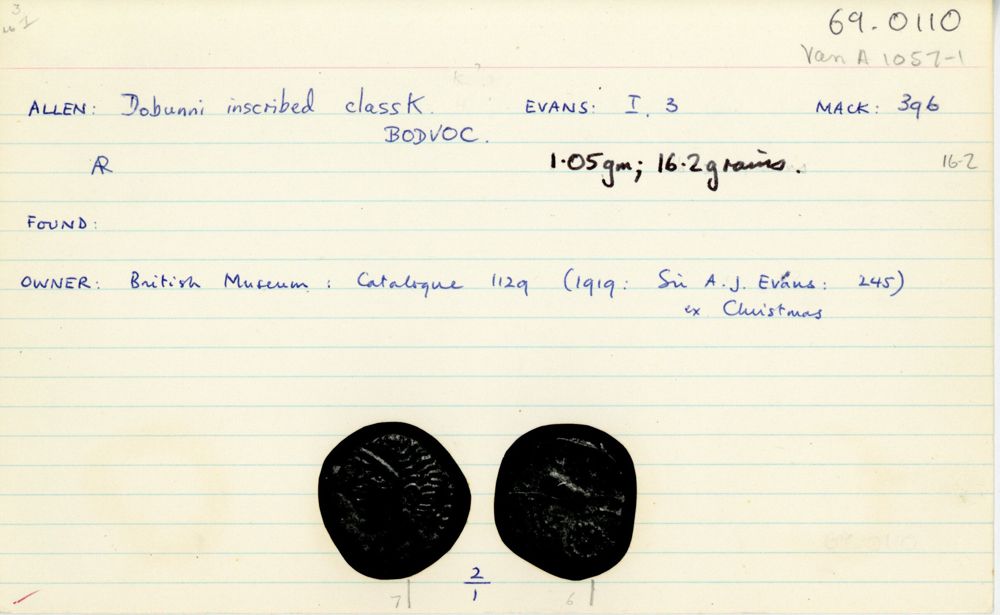 3
69.0110
Van A 1057-1
K?
ALLEN: Dobunni inscribed class K. EVANS: I. 3 MACK: 396
BODVOC.
AR 1.05gm; 16.2grains. 16.2
FOUND:
OWNER: British Museum: Catalogue 1129 (1919: Sir A.J. Evans: 245)
ex Christmas
2
1
7 6